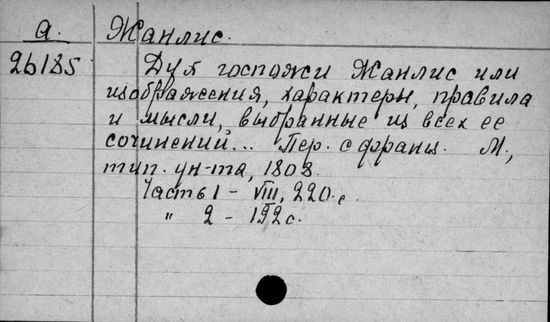 а. Жанлис.
26185 Дух госпожи Жанлис или
изображения, характеры, правила
и мысли, выбранные из всех ее
сочинений... Пер. с франц. М.,
тип. ун-та, 1808.
Часть 1 - VIII, 220 с.
" 2 - 192 с.